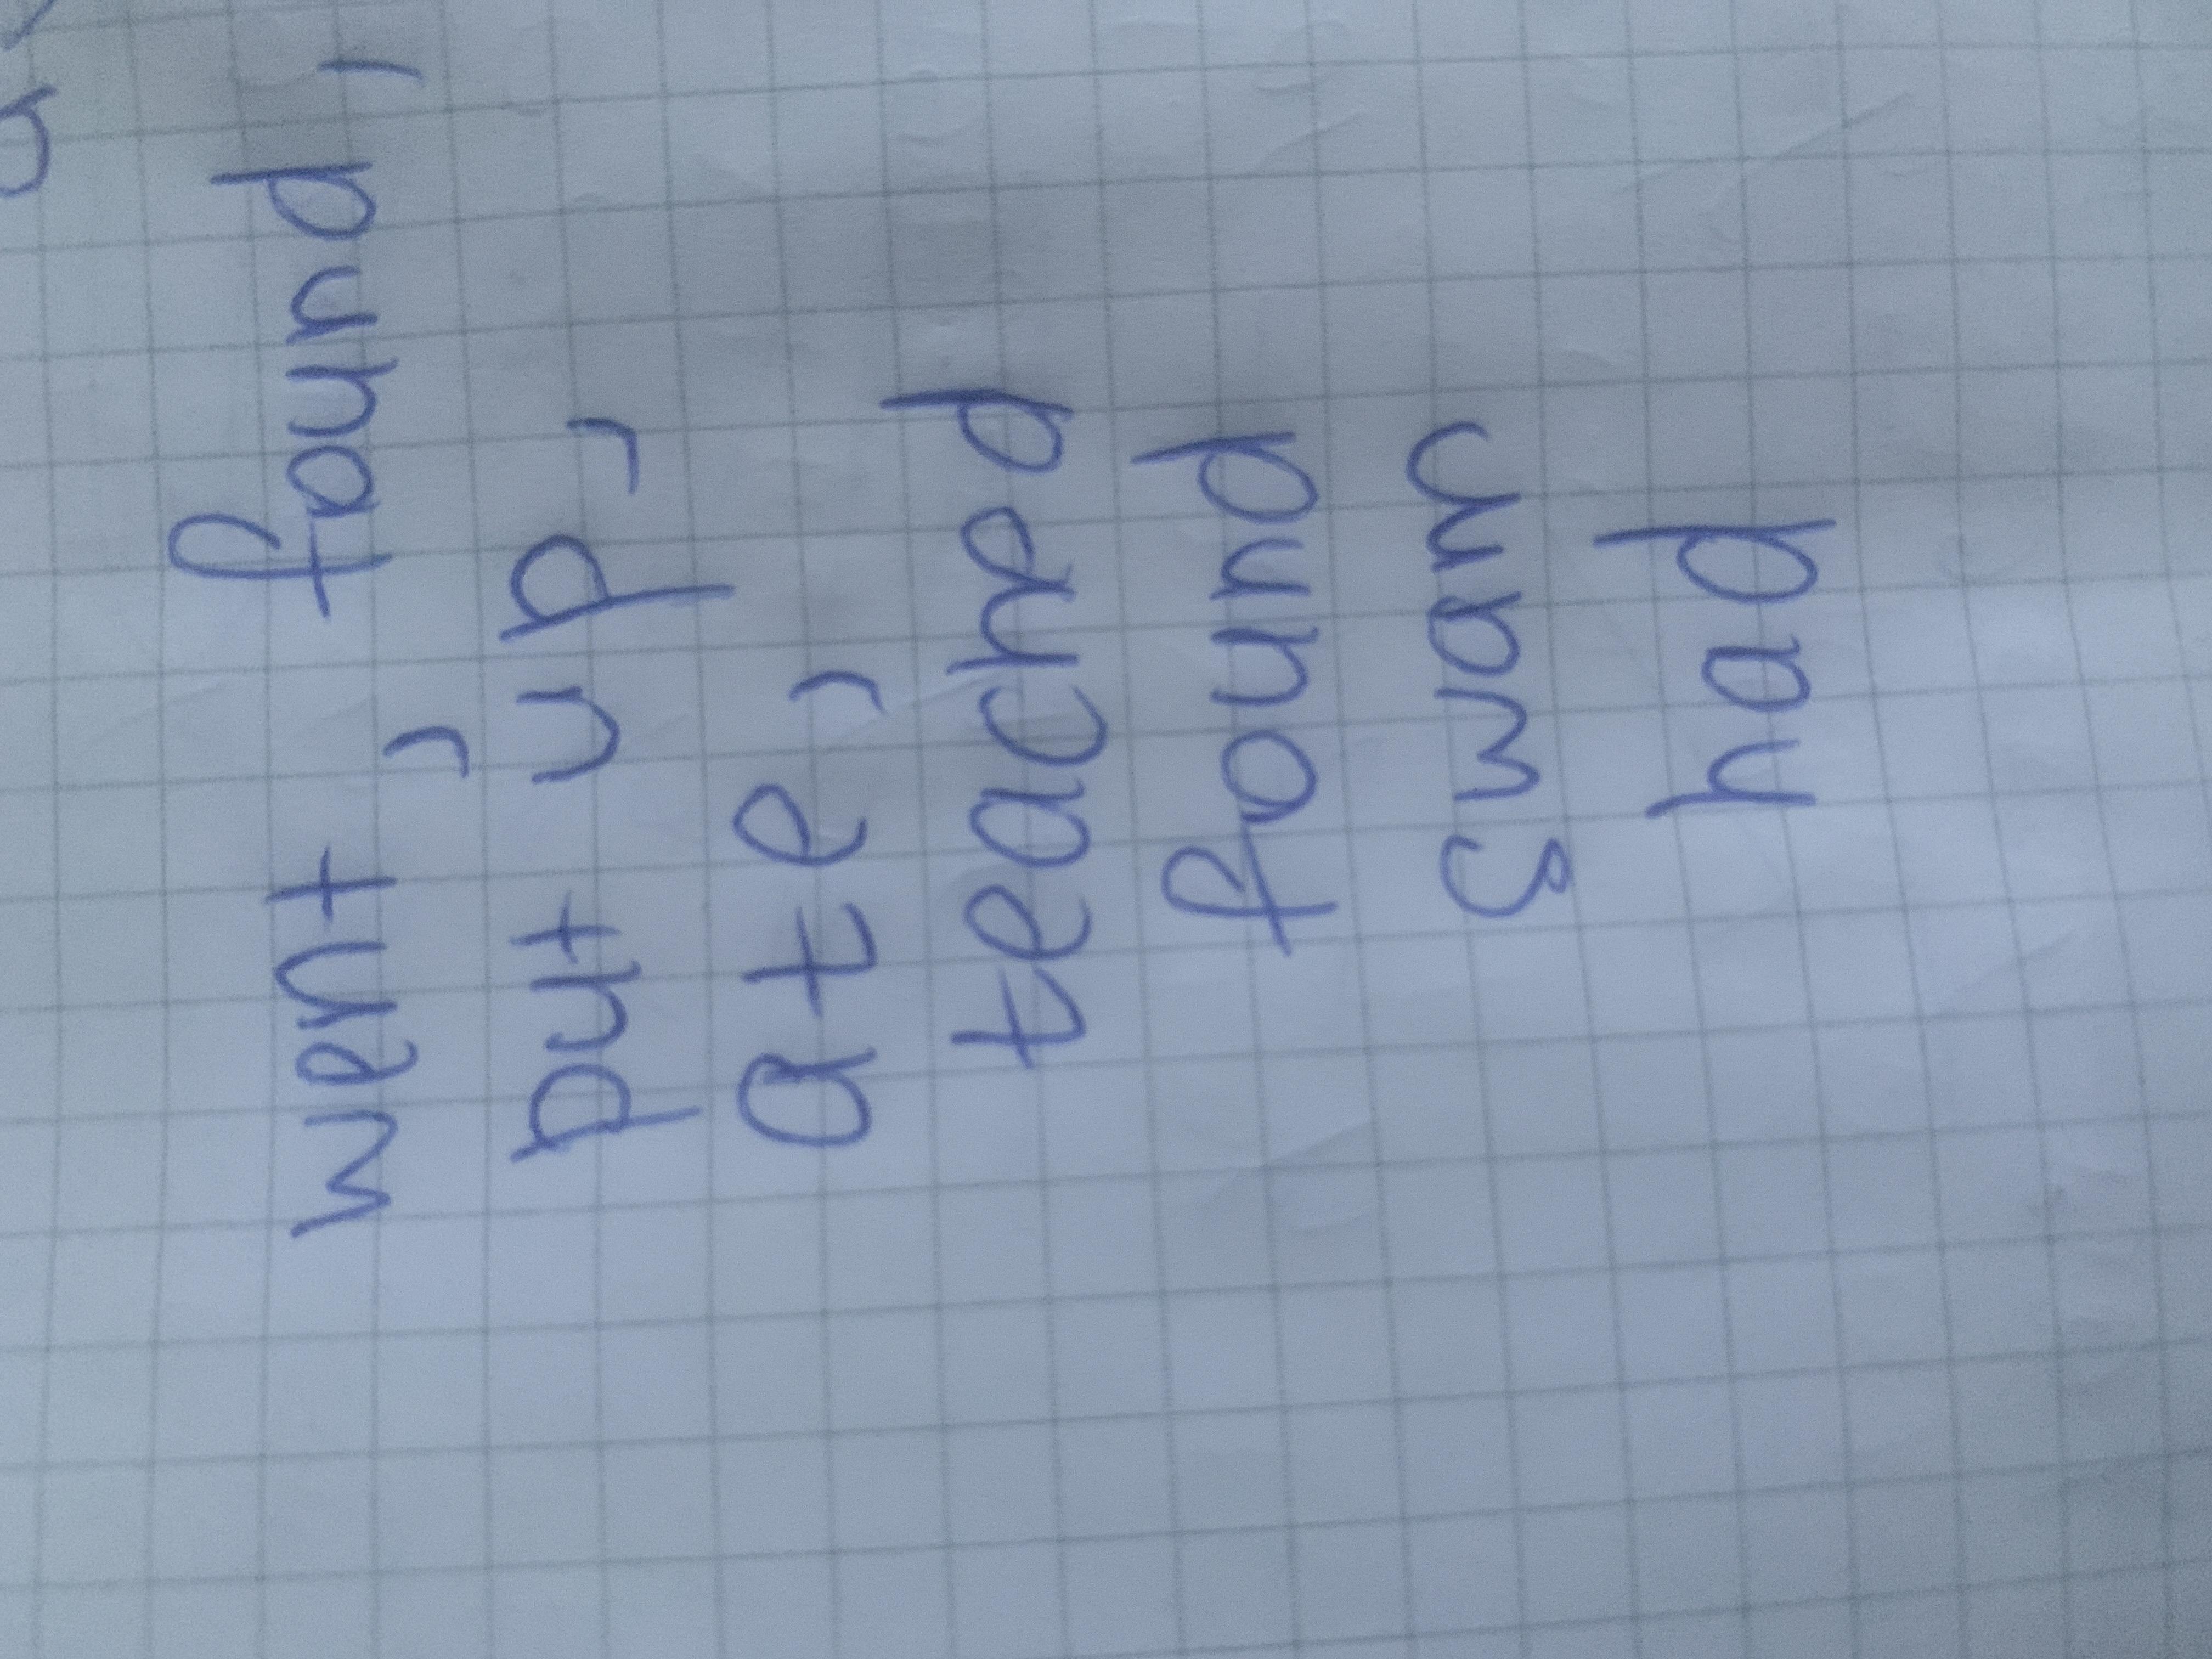 went, found,
put up,
ate,
teached
found
swam
had